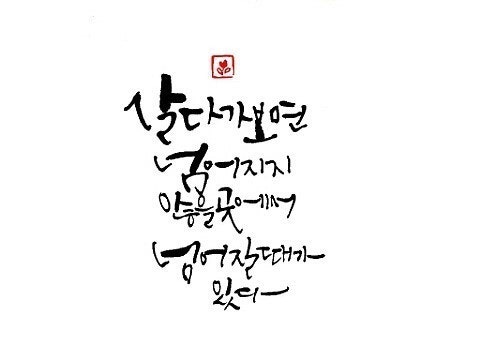 살다가보면
넘어지지
않을곳에서
넘어질때가
있다